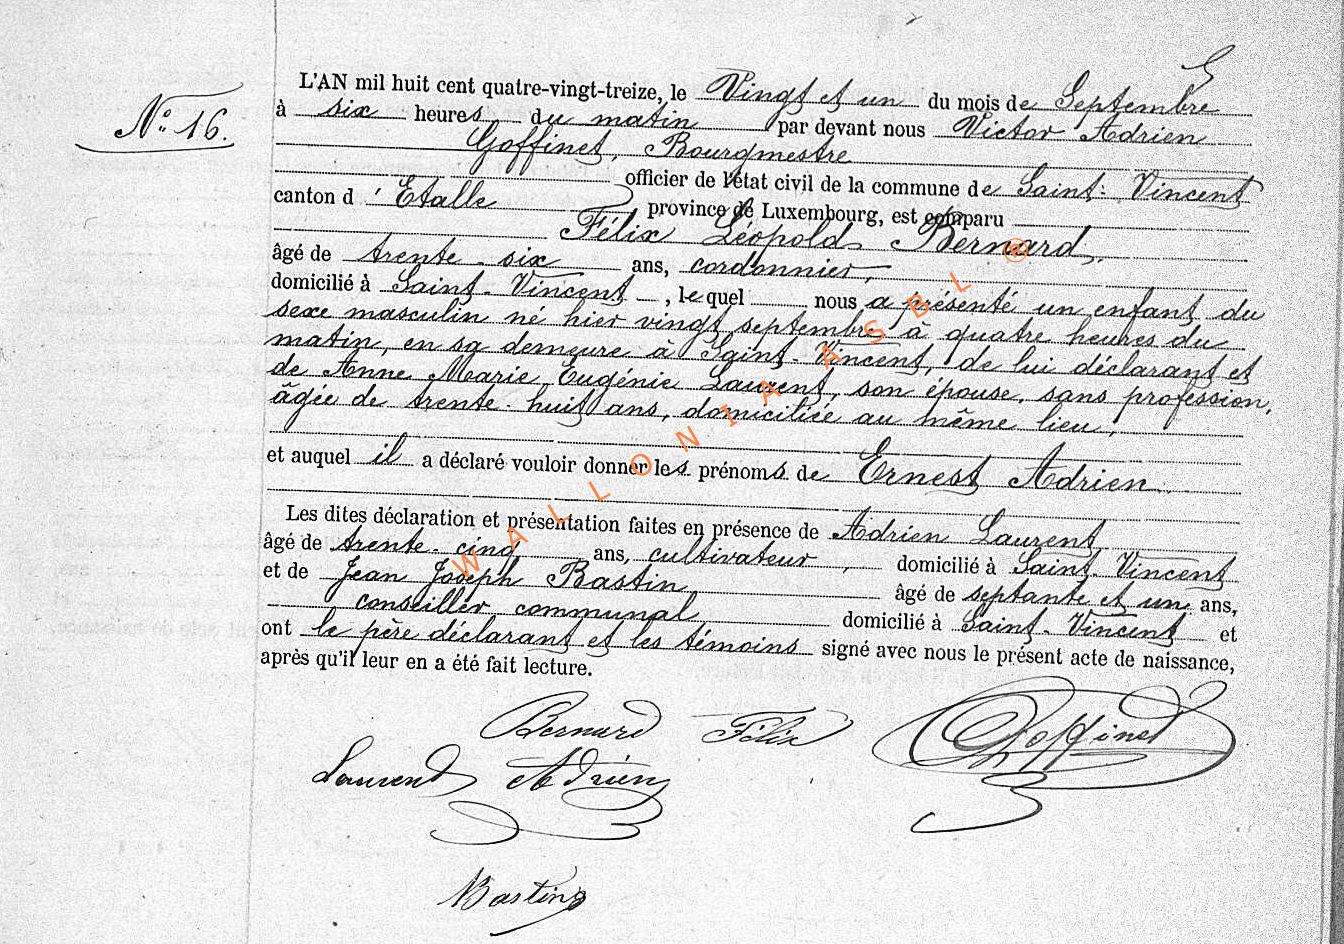 N° 16.
L'AN mil huit cent quatre-vingt-treize, le Vingt et un du mois de Septembre
à six heures du matin par devant nous Victor Adrien
Goffinet, Bourgmestre
officier de l'état civil de la commune de Saint-Vincent
canton d'Etalle province de Luxembourg, est comparu
Félix Léopold Bernard,
âgé de trente-six ans, cordonnier,
domicilié à Saint-Vincent, lequel nous a présenté un enfant du
sexe masculin né hier vingt septembre à quatre heures du
matin, en sa demeure à Saint-Vincent, de lui déclarant et
de Anne Marie Eugénie Laurent, son épouse, sans profession,
âgée de trente-huit ans, domiciliée au même lieu,
et auquel il a déclaré vouloir donner les prénoms de Ernest Adrien
Les dites déclaration et présentation faites en présence de Adrien Laurent
âgé de trente-cinq ans, cultivateur, domicilié à Saint-Vincent
et de Jean Joseph Bastin âgé de septante et un ans,
conseiller communal domicilié à Saint-Vincent et
ont le père déclarant et les témoins signé avec nous le présent acte de naissance,
après qu'il leur en a été fait lecture.
Bernard Félix Goffinet
Laurent Adrien
Bastin
WALLONIA ASBL ®